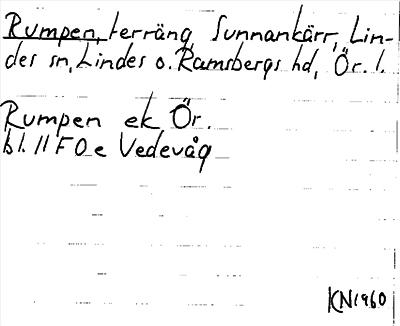 Rumpen, terräng, Sunnankärr, Lin-
des sn, Lindes o. Ramsbergs hd, Ör. l.
Rumpen ek, Ör.
bl. 11 F 0 e Vedevåg
KN 1960